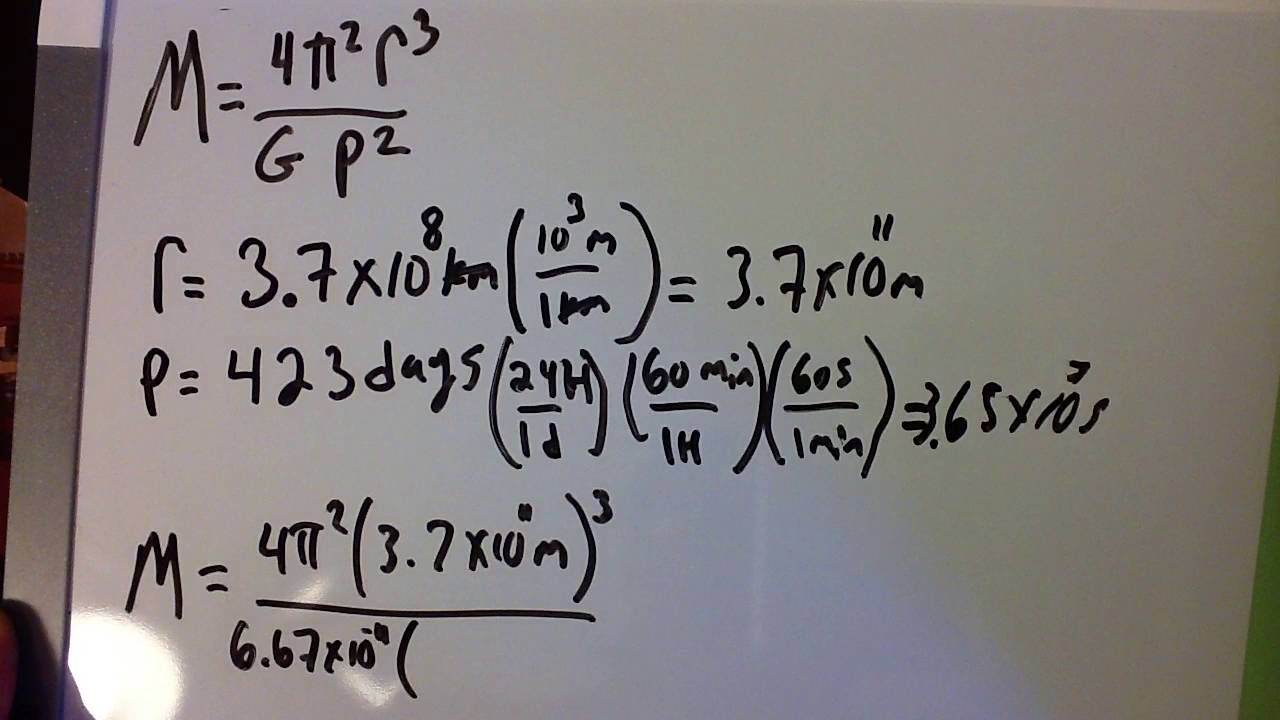 M = 4π²r³ / G P²
r = 3.7×10⁸ km (10³ m / 1 km) = 3.7×10¹¹ m
P = 423 days (24H / 1d) (60 min / 1H) (60s / 1min) = 3.65×10⁷ s
M = 4π² (3.7×10¹¹ m)³ / 6.67×10⁻¹¹ (